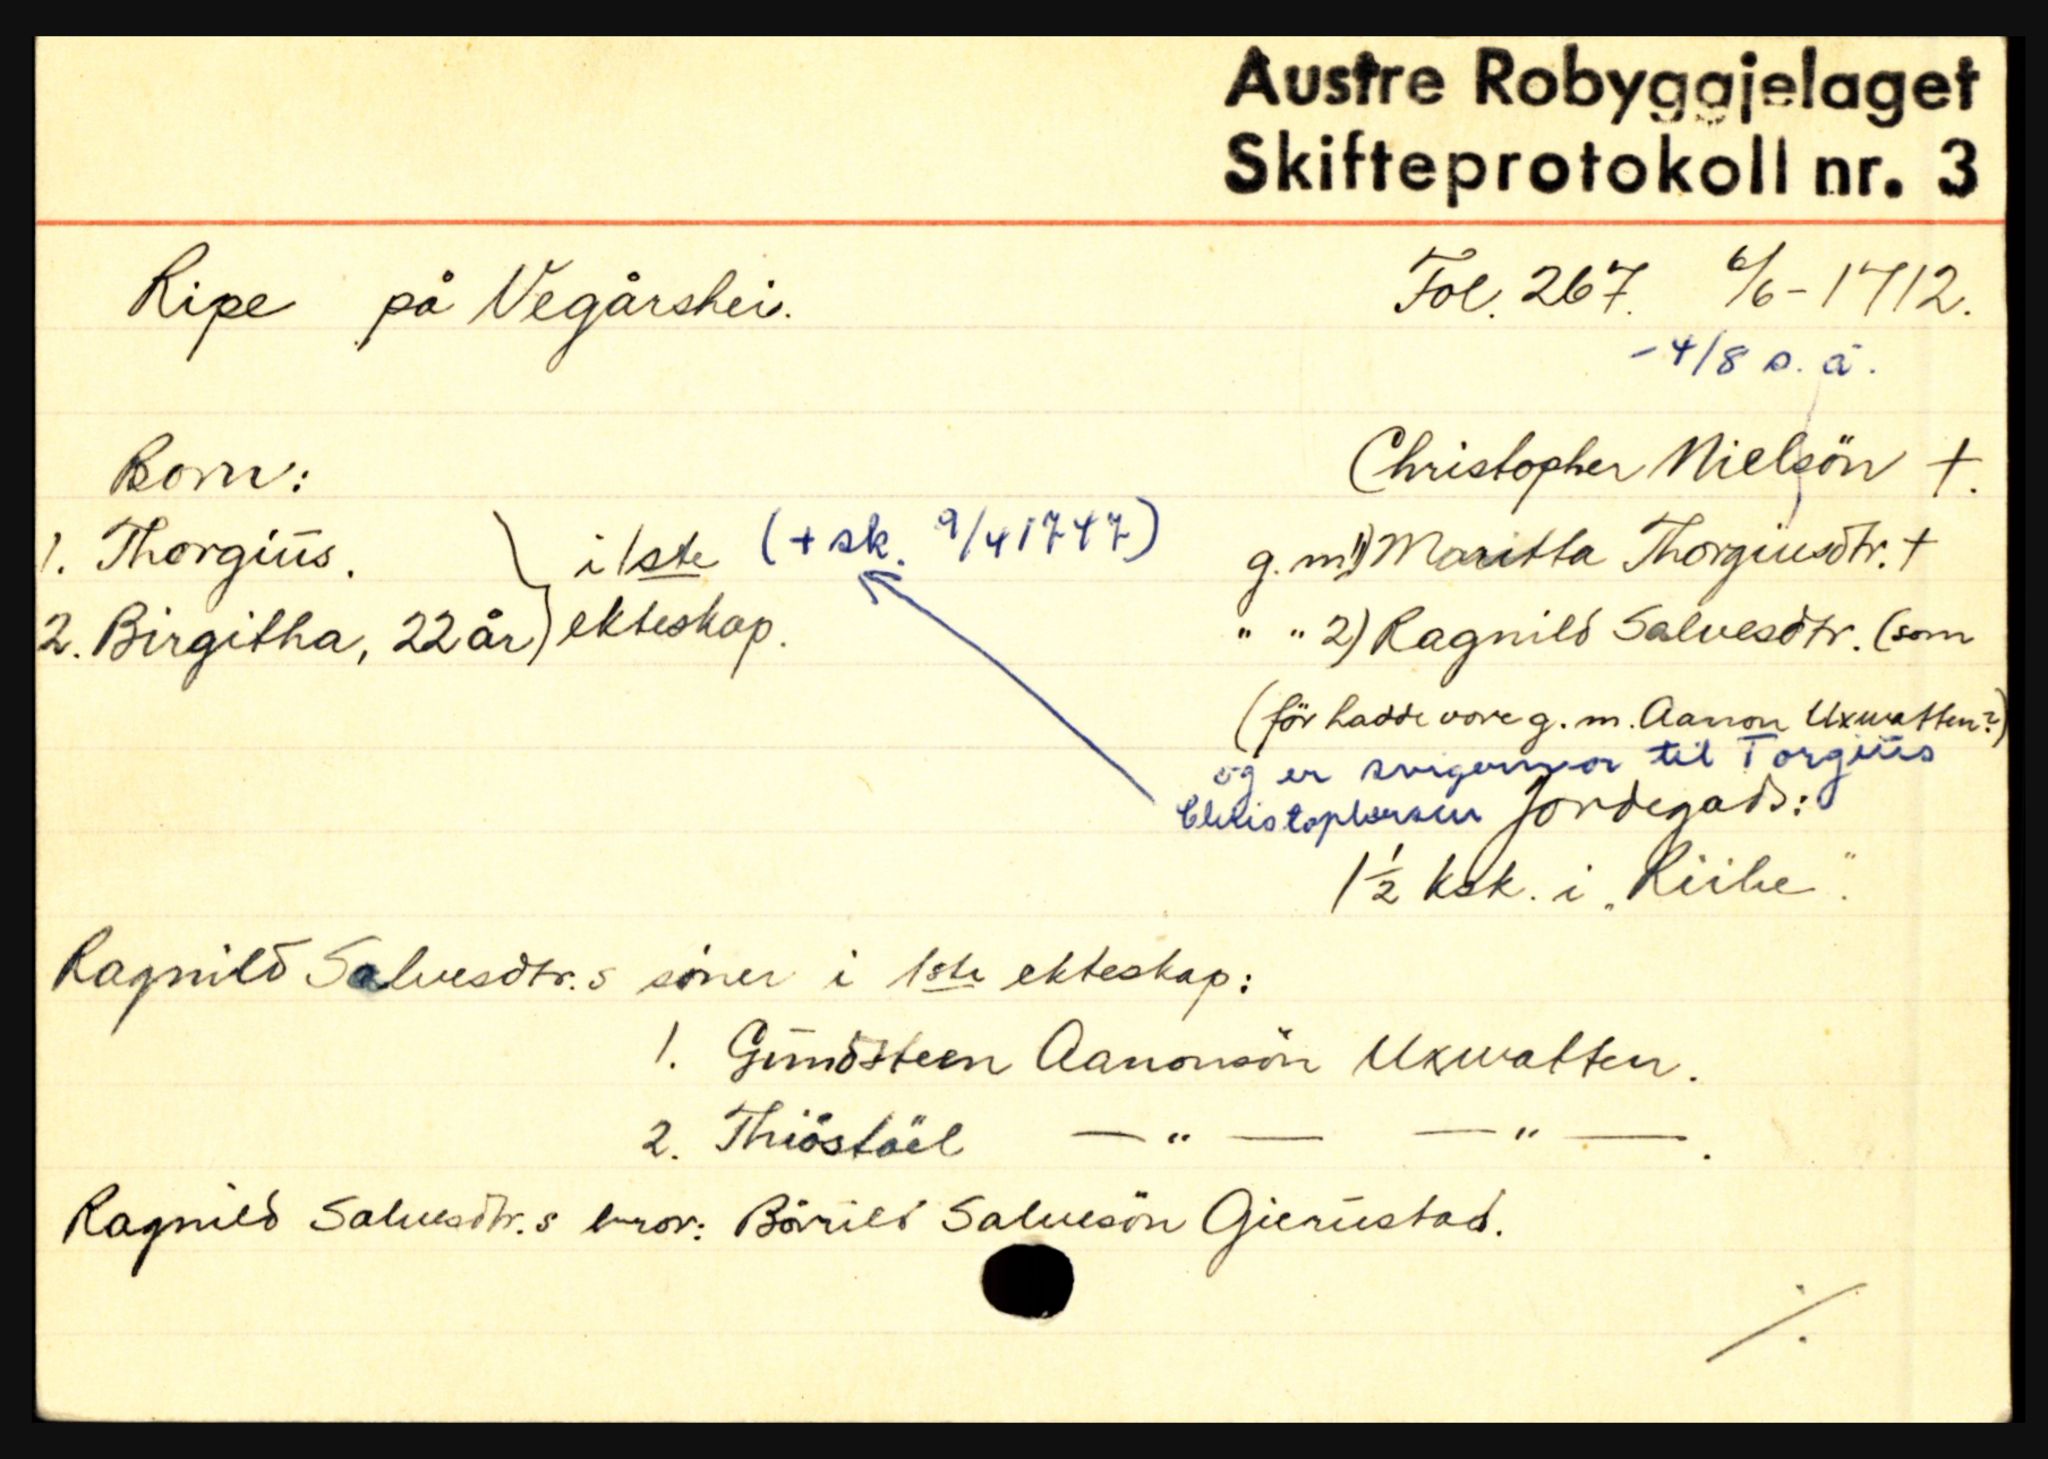 Austre Robyggjelaget
Skifteprotokoll nr. 3
Ripe på Vegårshei.
Fol. 267. 6/6-1712.
-4/8 s. å.
Christopher Nielsön †.
g.m. 1) Maritta Thorgiusdtr. †
" " 2) Ragnild Salvesdtr. (som
(för hadde vore g. m. Aanon Uxwatten?)
og er svigermor til Torgiüs
Christophersen
Jordegods:
1 1/2 ksk. i „Riibe".
Born:
1. Thorgiüs.
2. Birgitha, 22 år
} i 1ste
ekteskap.
(+ sk. 9/4 1747)
Ragnild Salvesdtr.s söner i 1ste ekteskap:
1. Gündsteen Aanonsön Uxwatten.
2. Thiöstäel — " — — " —.
Ragnild Salvesdtr.s bror: Börild Salvesön Gierüstad.
./.